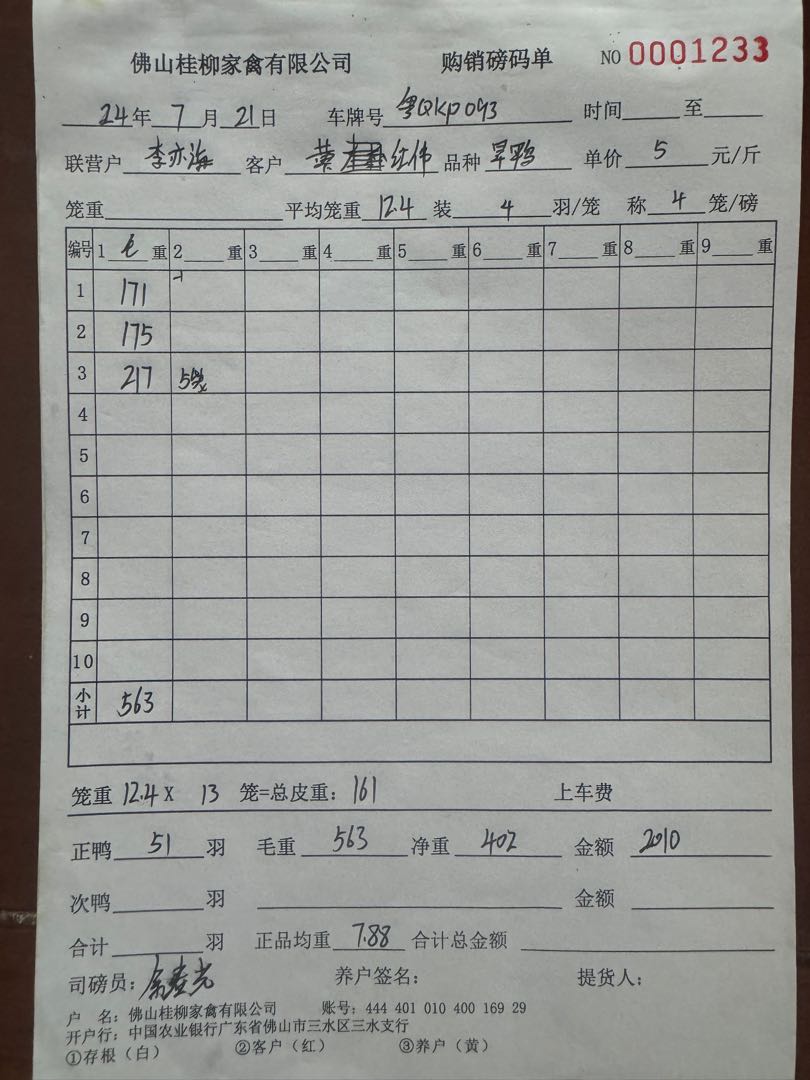 佛山桂柳家禽有限公司 购销磅码单 NO 0001233
24年 7月 21日 车牌号 粤QKP093 时间 至
联营户 李亦海 客户 黄红伟 品种 旱鸭 单价 5 元/斤
笼重 平均笼重 12.4 装 4 羽/笼 称 4 笼/磅
编号 1 毛 重 2 重 3 重 4 重 5 重 6 重 7 重 8 重 9 重
1 171
2 175
3 217 5笼
4
5
6
7
8
9
10
小计 563
笼重 12.4 X 13 笼=总皮重: 161 上车费
正鸭 51 羽 毛重 563 净重 402 金额 2010
次鸭 羽 金额
合计 羽 正品均重 7.88 合计总金额
司磅员: 养户签名: 提货人:
户 名: 佛山桂柳家禽有限公司 账号: 444 401 010 400 169 29
开户行: 中国农业银行广东省佛山市三水区三水支行
①存根(白) ②客户(红) ③养户(黄)